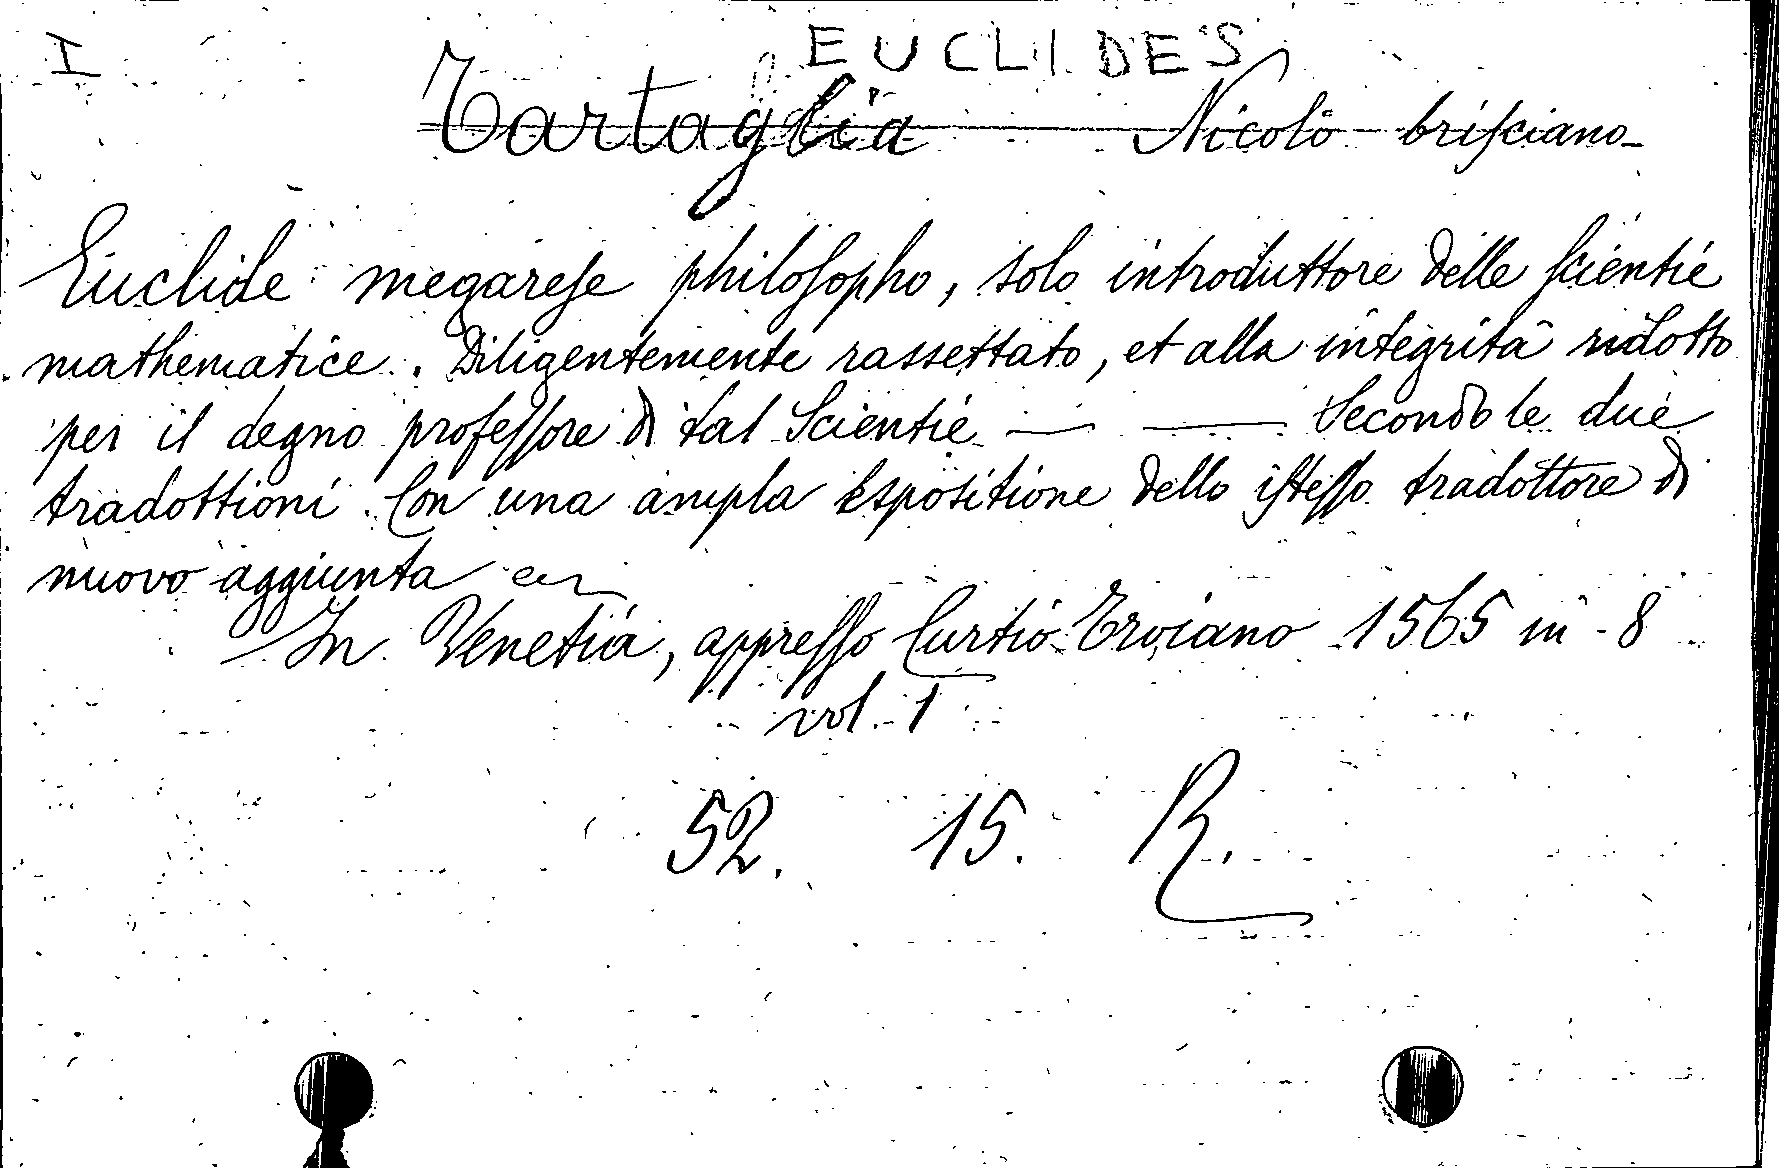 I
EUCLIDES
Tartaglia Nicolò brisciano
Euclide megarese philosopho, solo introduttore delle scientie
mathematice. Diligentemente rassettato, et alla integrità ridotto
per il degno professore di tal Scientie — — Secondo le due
tradottioni. Con una ampla espositione dello istesso tradottore di
nuovo aggiunta
In Venetia, appresso Curtio Troiano 1565 in-8
vol. 1
52. 15. R.